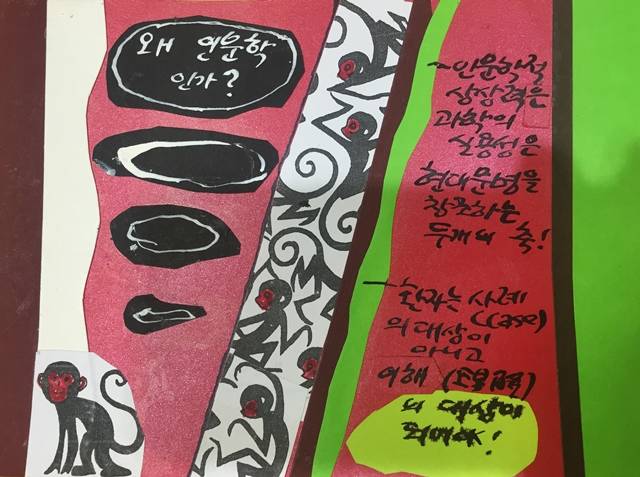 왜 인문학
인가?
~인문학적
상상력은
과학의
실용성은
현대문명을
창조하는
두개의 축!
一 환자는 사례
(case)
의 대상이
아니고
이해
의 대상이
되어야!